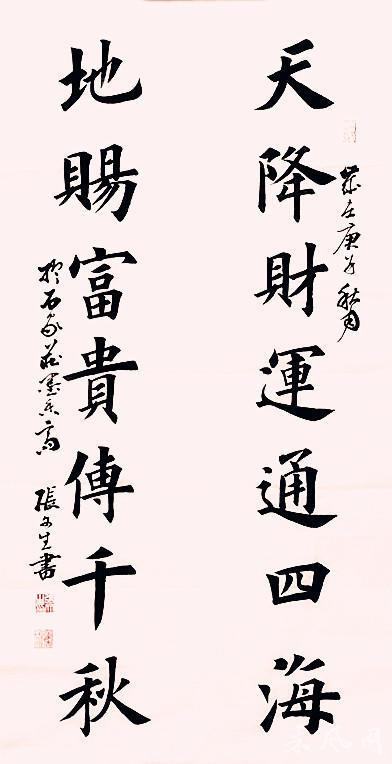 天降財運通四海
歲在庚子秋月
地賜富貴傳千秋
於石家莊墨香齋
張文生書